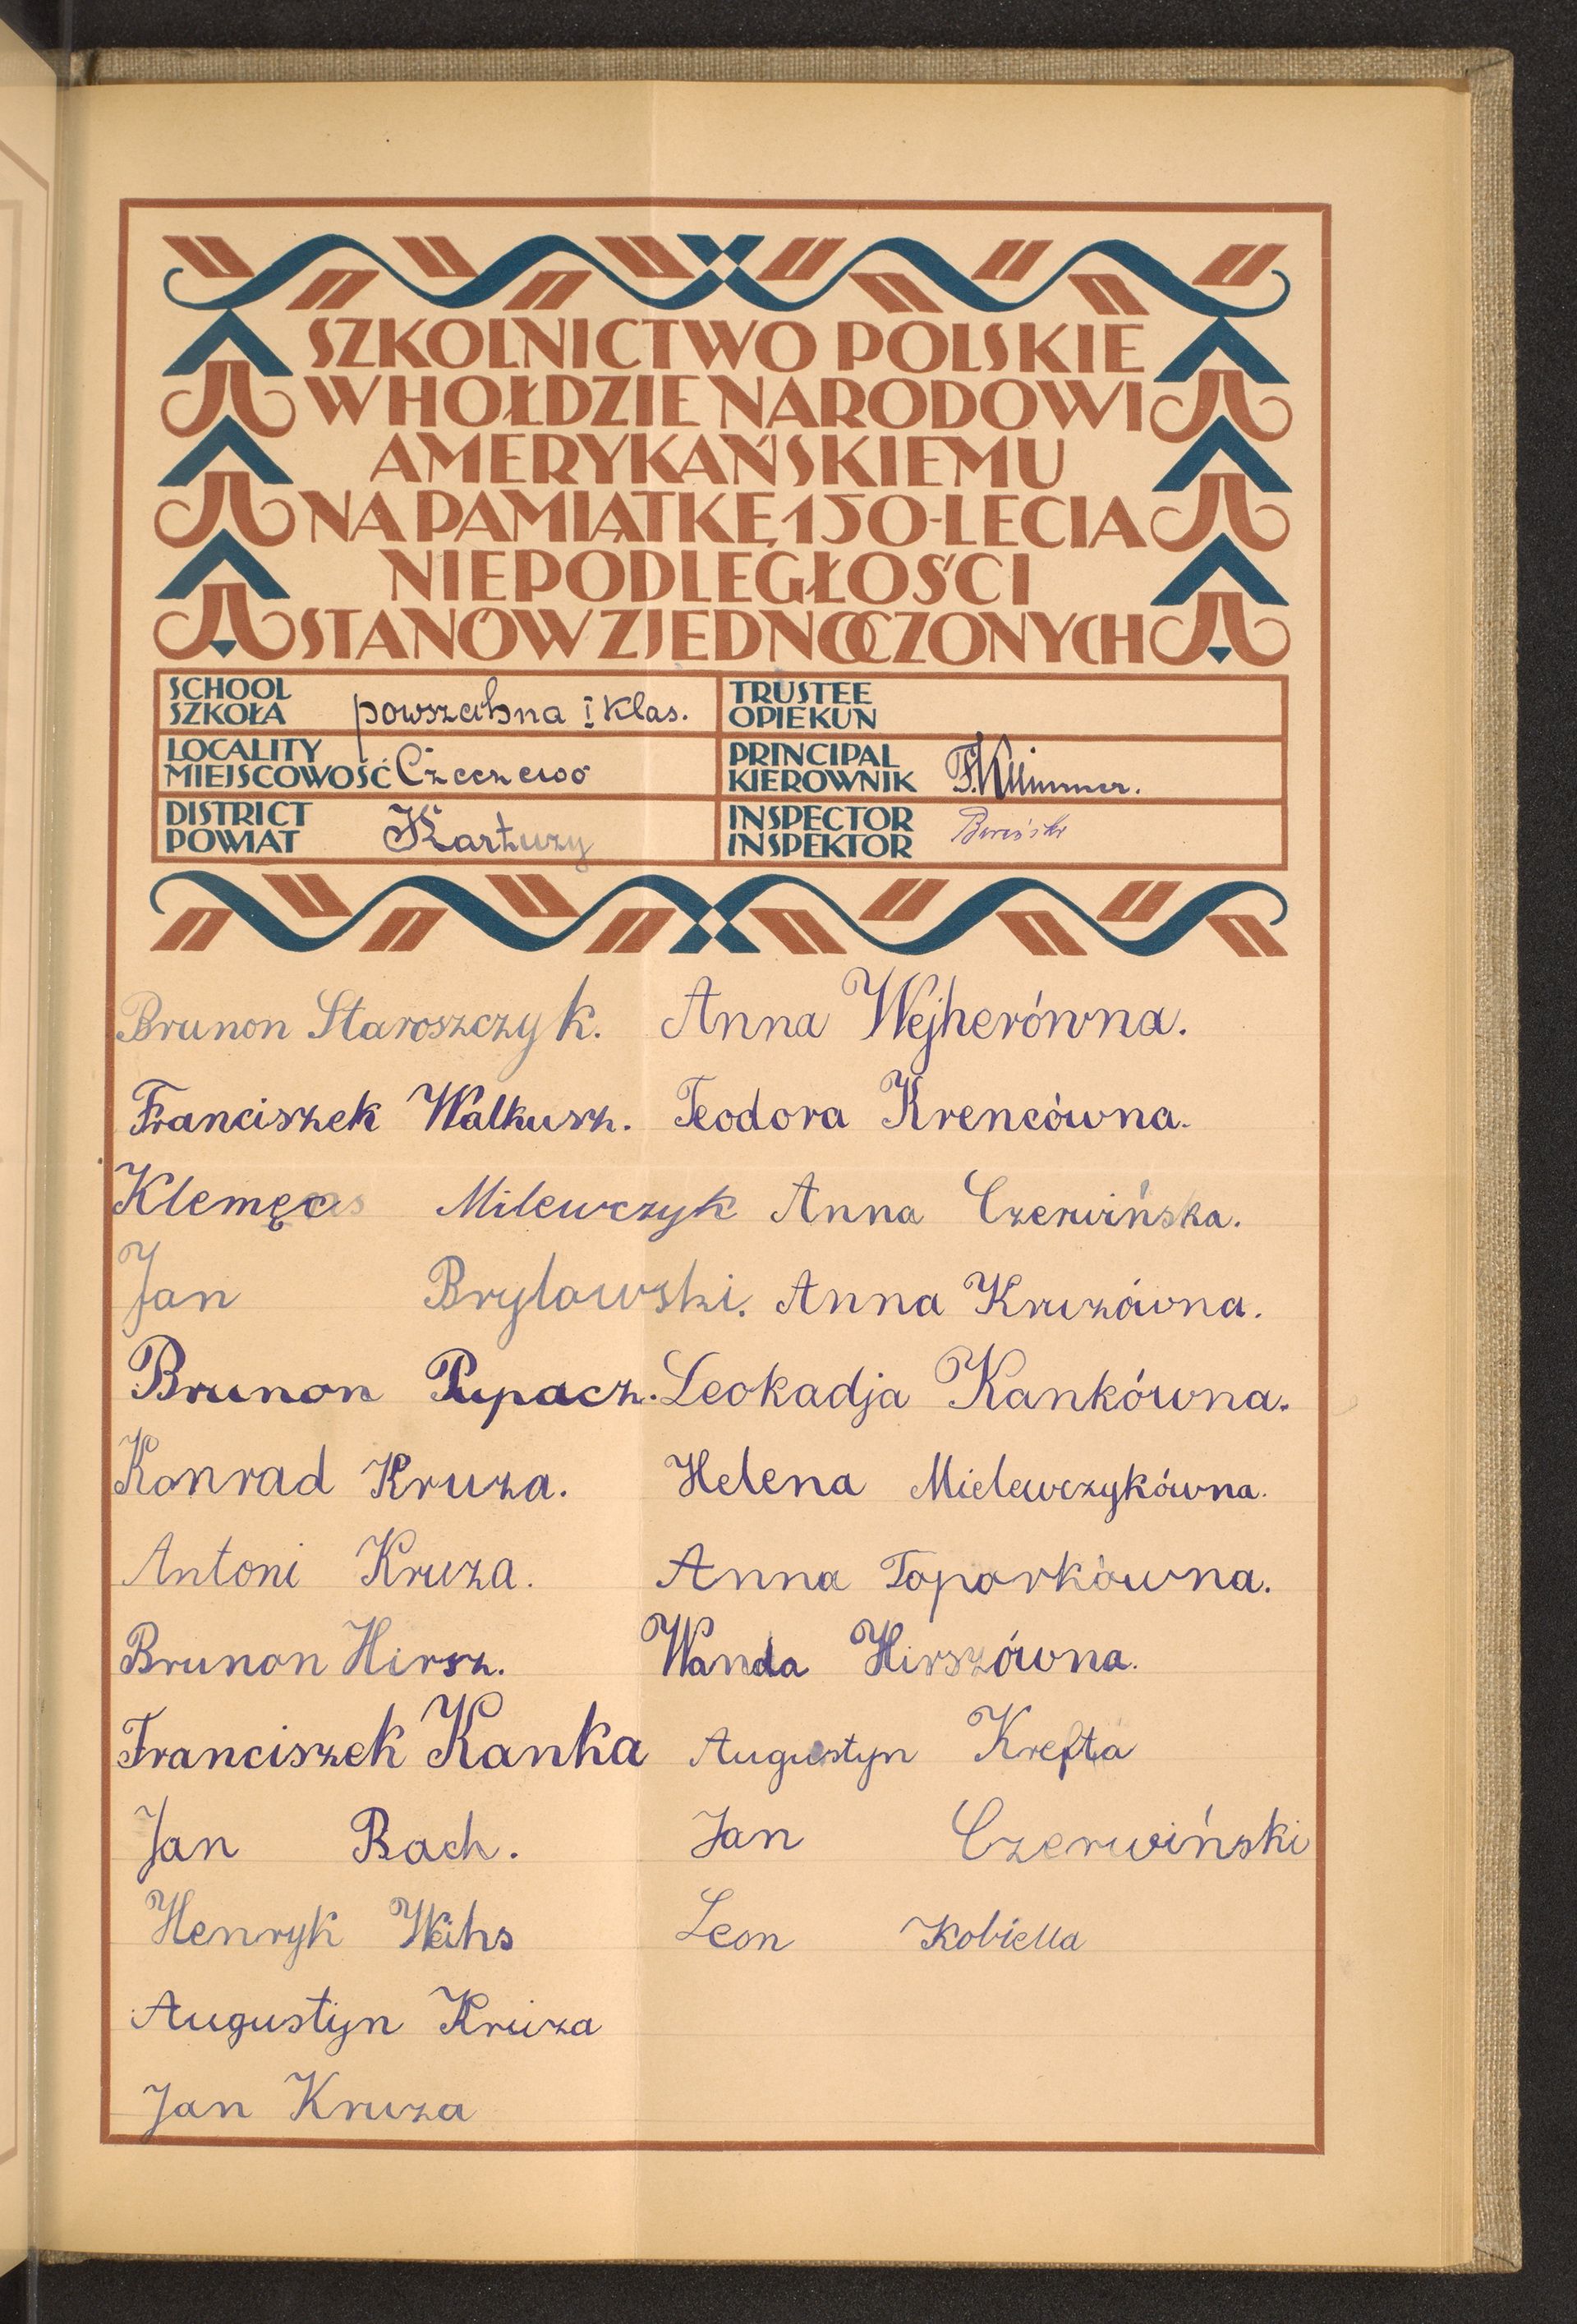 SZKOLNICTWO POLSKIE
W HOŁDZIE NARODOWI
AMERYKAŃSKIEMU
NA PAMIĄTKĘ 150-LECIA
NIEPODLEGŁOŚCI
STANÓW ZJEDNOCZONYCH
SCHOOL
SZKOŁA powszechna I klas.
TRUSTEE
OPIEKUN
LOCALITY
MIEJSCOWOŚĆ Czeczewo
PRINCIPAL
KIEROWNIK
DISTRICT
POWIAT Kartuzy
INSPECTOR
INSPEKTOR
Brunon Staroszczyk. Anna Wejherówna.
Franciszek Walkusz. Teodora Krencówna.
Klemęns Milewczyk Anna Czerwińska.
Jan Brylowski. Anna Kruzówna.
Brunon Pupacz. Leokadja Kankówna.
Konrad Kruza. Helena Mielewczykówna.
Antoni Kruza. Anna Toporkówna.
Brunon Hirsz. Wanda Hirszówna.
Franciszek Kanka Augustyn Krefta
Jan Bach. Jan Czerwiński
Henryk Weihs Leon Kobiella
Augustyn Kruza
Jan Kruza